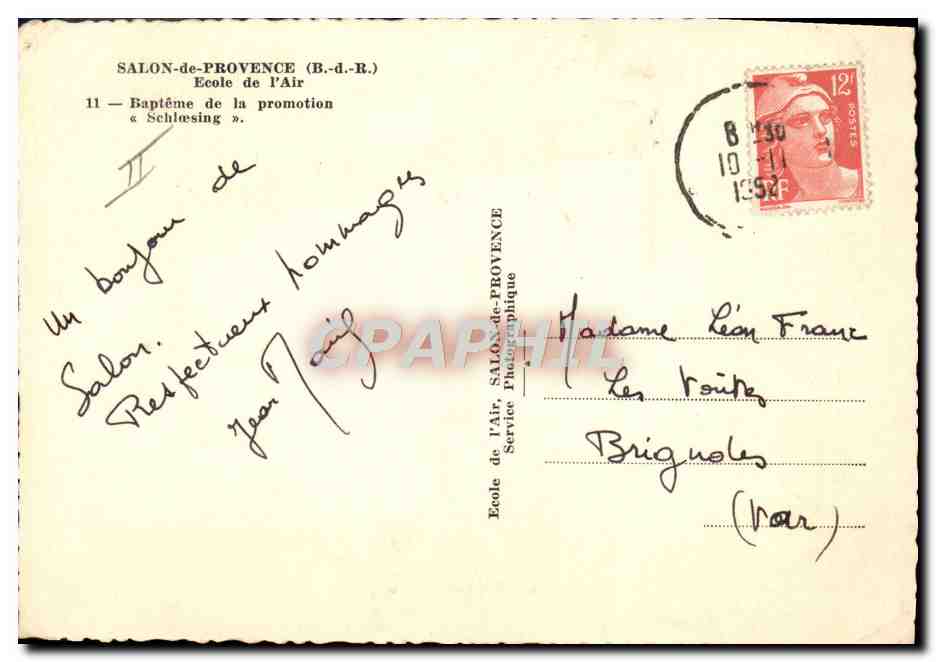 SALON-de-PROVENCE (B.-d.-R.)
Ecole de l'Air
11 — Baptême de la promotion
« Schlœsing ».
II
Un bonjour de
Salon.
Respectueux hommages
Jean
Ecole de l'Air, SALON-de-PROVENCE
Service Photographique
CPAPHIL
12F
POSTES
RF
8 H30
10 -11
1952
Madame Léon Franc
Les Voûtes
Brignoles
(Var)